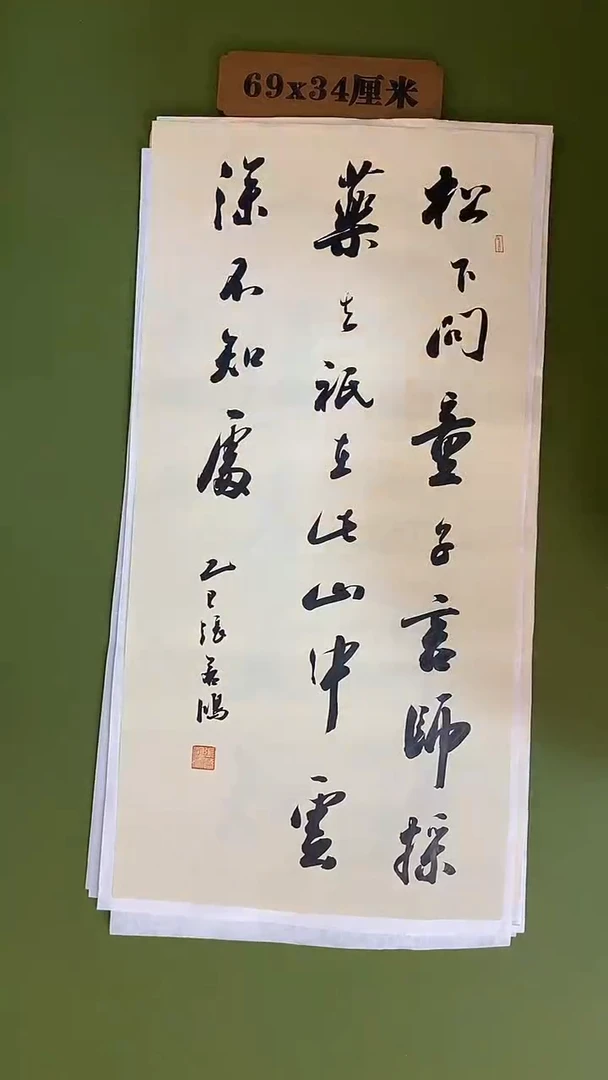 69x34厘米
松下問童子言師採
藥去祇在此山中雲
深不知處
乙巳張若鴻